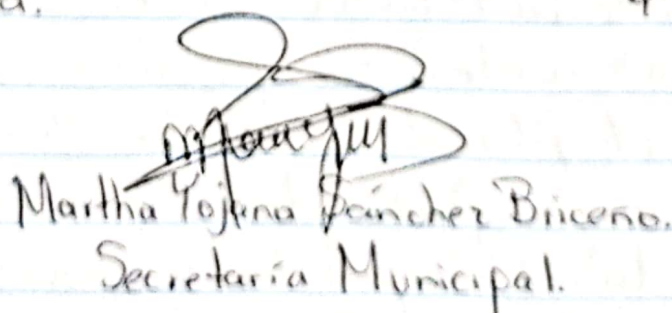 a.
Martha Yojana Sánchez Briceño.
Secretaria Municipal.